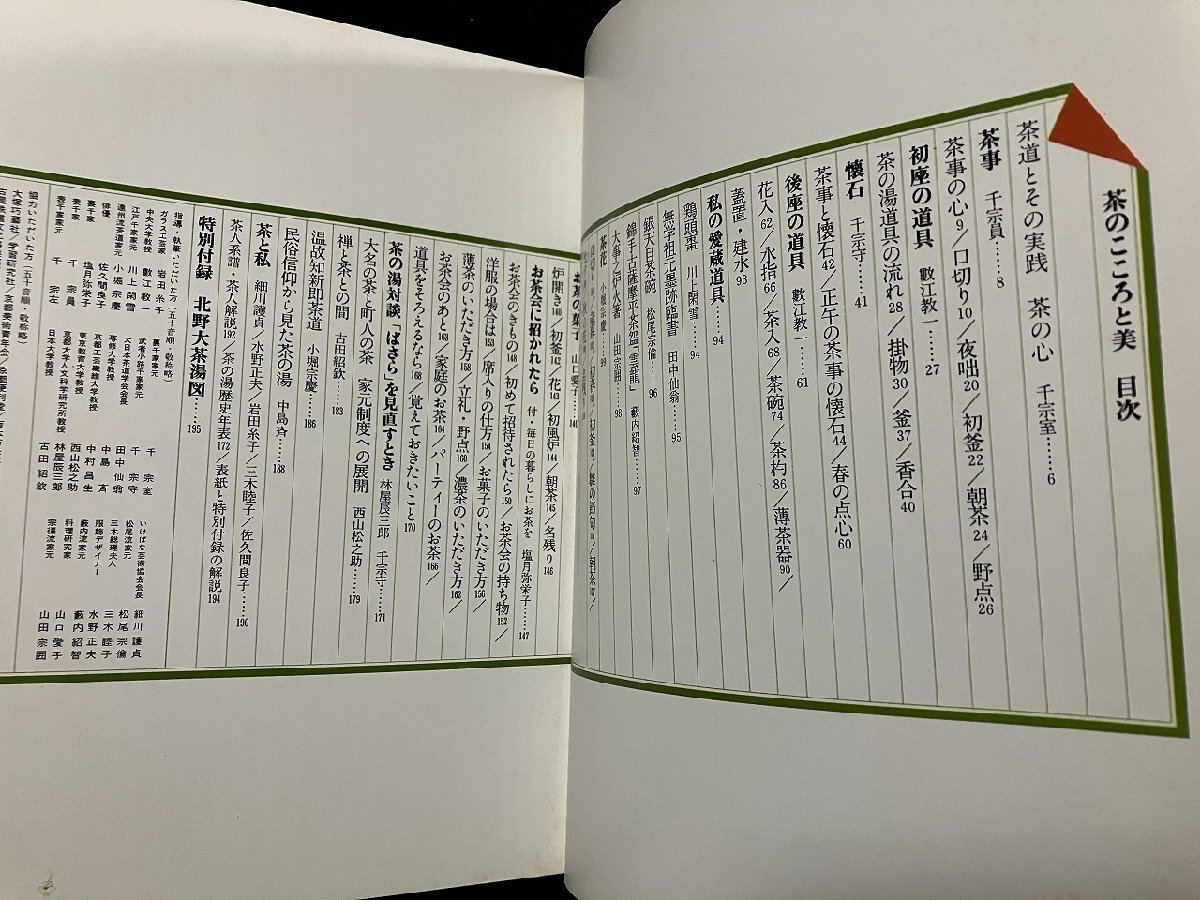 茶のこころと美　目次
茶道とその実践　茶の心　千宗室……6
茶事　千宗員……8
茶事の心9／口切り10／夜咄20／初釜22／朝茶24／野点26
初座の道具　數江教一……27
茶の湯道具の流れ28／掛物30／釜37／香合40
懐石　千宗守……41
茶事と懐石42／正午の茶事の懐石44／春の点心60
後座の道具　數江教一……61
花入62／水指66／茶入68／茶碗74／茶杓86／薄茶器90／
蓋置・建水93
私の愛蔵道具……94
鶏頭棗　川上閑雪……94
無学祖元墨跡臨書　田中仙翁……95
銀大白茶碗　松尾宗倫……96
錦手土薩摩平茶碗「雲龍」　藪内紹智……97
大事之炉火箸　山田宗囲……98
茶花　小堀宗慶……99
お茶の菓子　山口愛子……140
炉開き140／初釜142／花143／初風炉144／朝茶145／名残り146
お茶会に招かれたら　付・毎日の暮らしにお茶を　塩月弥栄子……147
お茶会のきもの148／初めて招待されたら150／お茶会の持ち物152／
洋服の場合は153／席入りの仕方154／お菓子のいただき方156／
薄茶のいただき方158／立礼・野点160／濃茶のいただき方162／
お茶会のあと163／家庭のお茶164／パーティーのお茶166／
道具をそろえるなら168／覚えておきたいこと170
茶の湯対談「ばさら」を見直すとき　林屋辰三郎　千宗守……171
大名の茶と町人の茶　家元制度への展開　西山松之助……179
禅と茶との間　古田紹欽……183
温故知新即茶道　小堀宗慶……186
民俗信仰から見た茶の湯　中島斉……188
茶と私　細川護貞／水野正夫／岩田糸子／三木睦子／佐久間良子……190
茶人系譜・茶人解説192／茶の湯歴史年表172／表紙と特別付録の解説194
特別付録　北野大茶湯図……195
指導・執筆いただいた方（五十音順・敬称略）
ガラス工芸家　岩田糸子
中央大学教授　數江教一
江戸千家家元　川上閑雪
遠州流茶道家元　小堀宗慶
俳優　佐久間良子
裏千家　塩月弥栄子
表千家　千　宗員
表千家家元　千　宗左
裏千家家元　千　宗室
武者小路千家家元　千　宗守
大日本茶道学会会長　田中仙翁
専修大学教授　中島　斉
京都工芸繊維大学教授　中村昌生
東京教育大学教授　西山松之助
京都大学人文科学研究所教授　林屋辰三郎
日本大学教授　古田紹欽
いけばな芸術協会会長　細川護貞
松尾流家元　松尾宗倫
三木総理夫人　三木睦子
服飾デザイナー　水野正夫
藪内流家元　藪内紹智
料理研究家　山口愛子
宗徧流家元　山田宗囲
協力いただいた方（五十音順・敬称略）